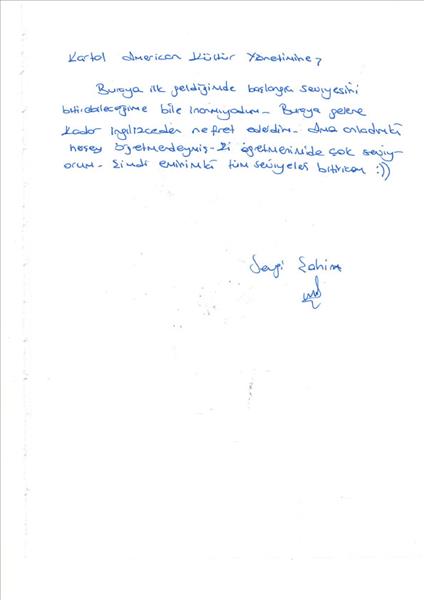 Kartal American Kültür Yönetimine,
Buraya ilk geldiğimde başlangıç seviyesini
bitirebileceğime bile inanmıyodum. Buraya gelene
kadar ingilizceden nefret ederdim. Ama anladımki
herşey öğretmendeymiş. Ki öğretmenimide çok seviy-
orum. Şimdi eminimki tüm seviyeleri bitiricem :))
Sevgi Şahin